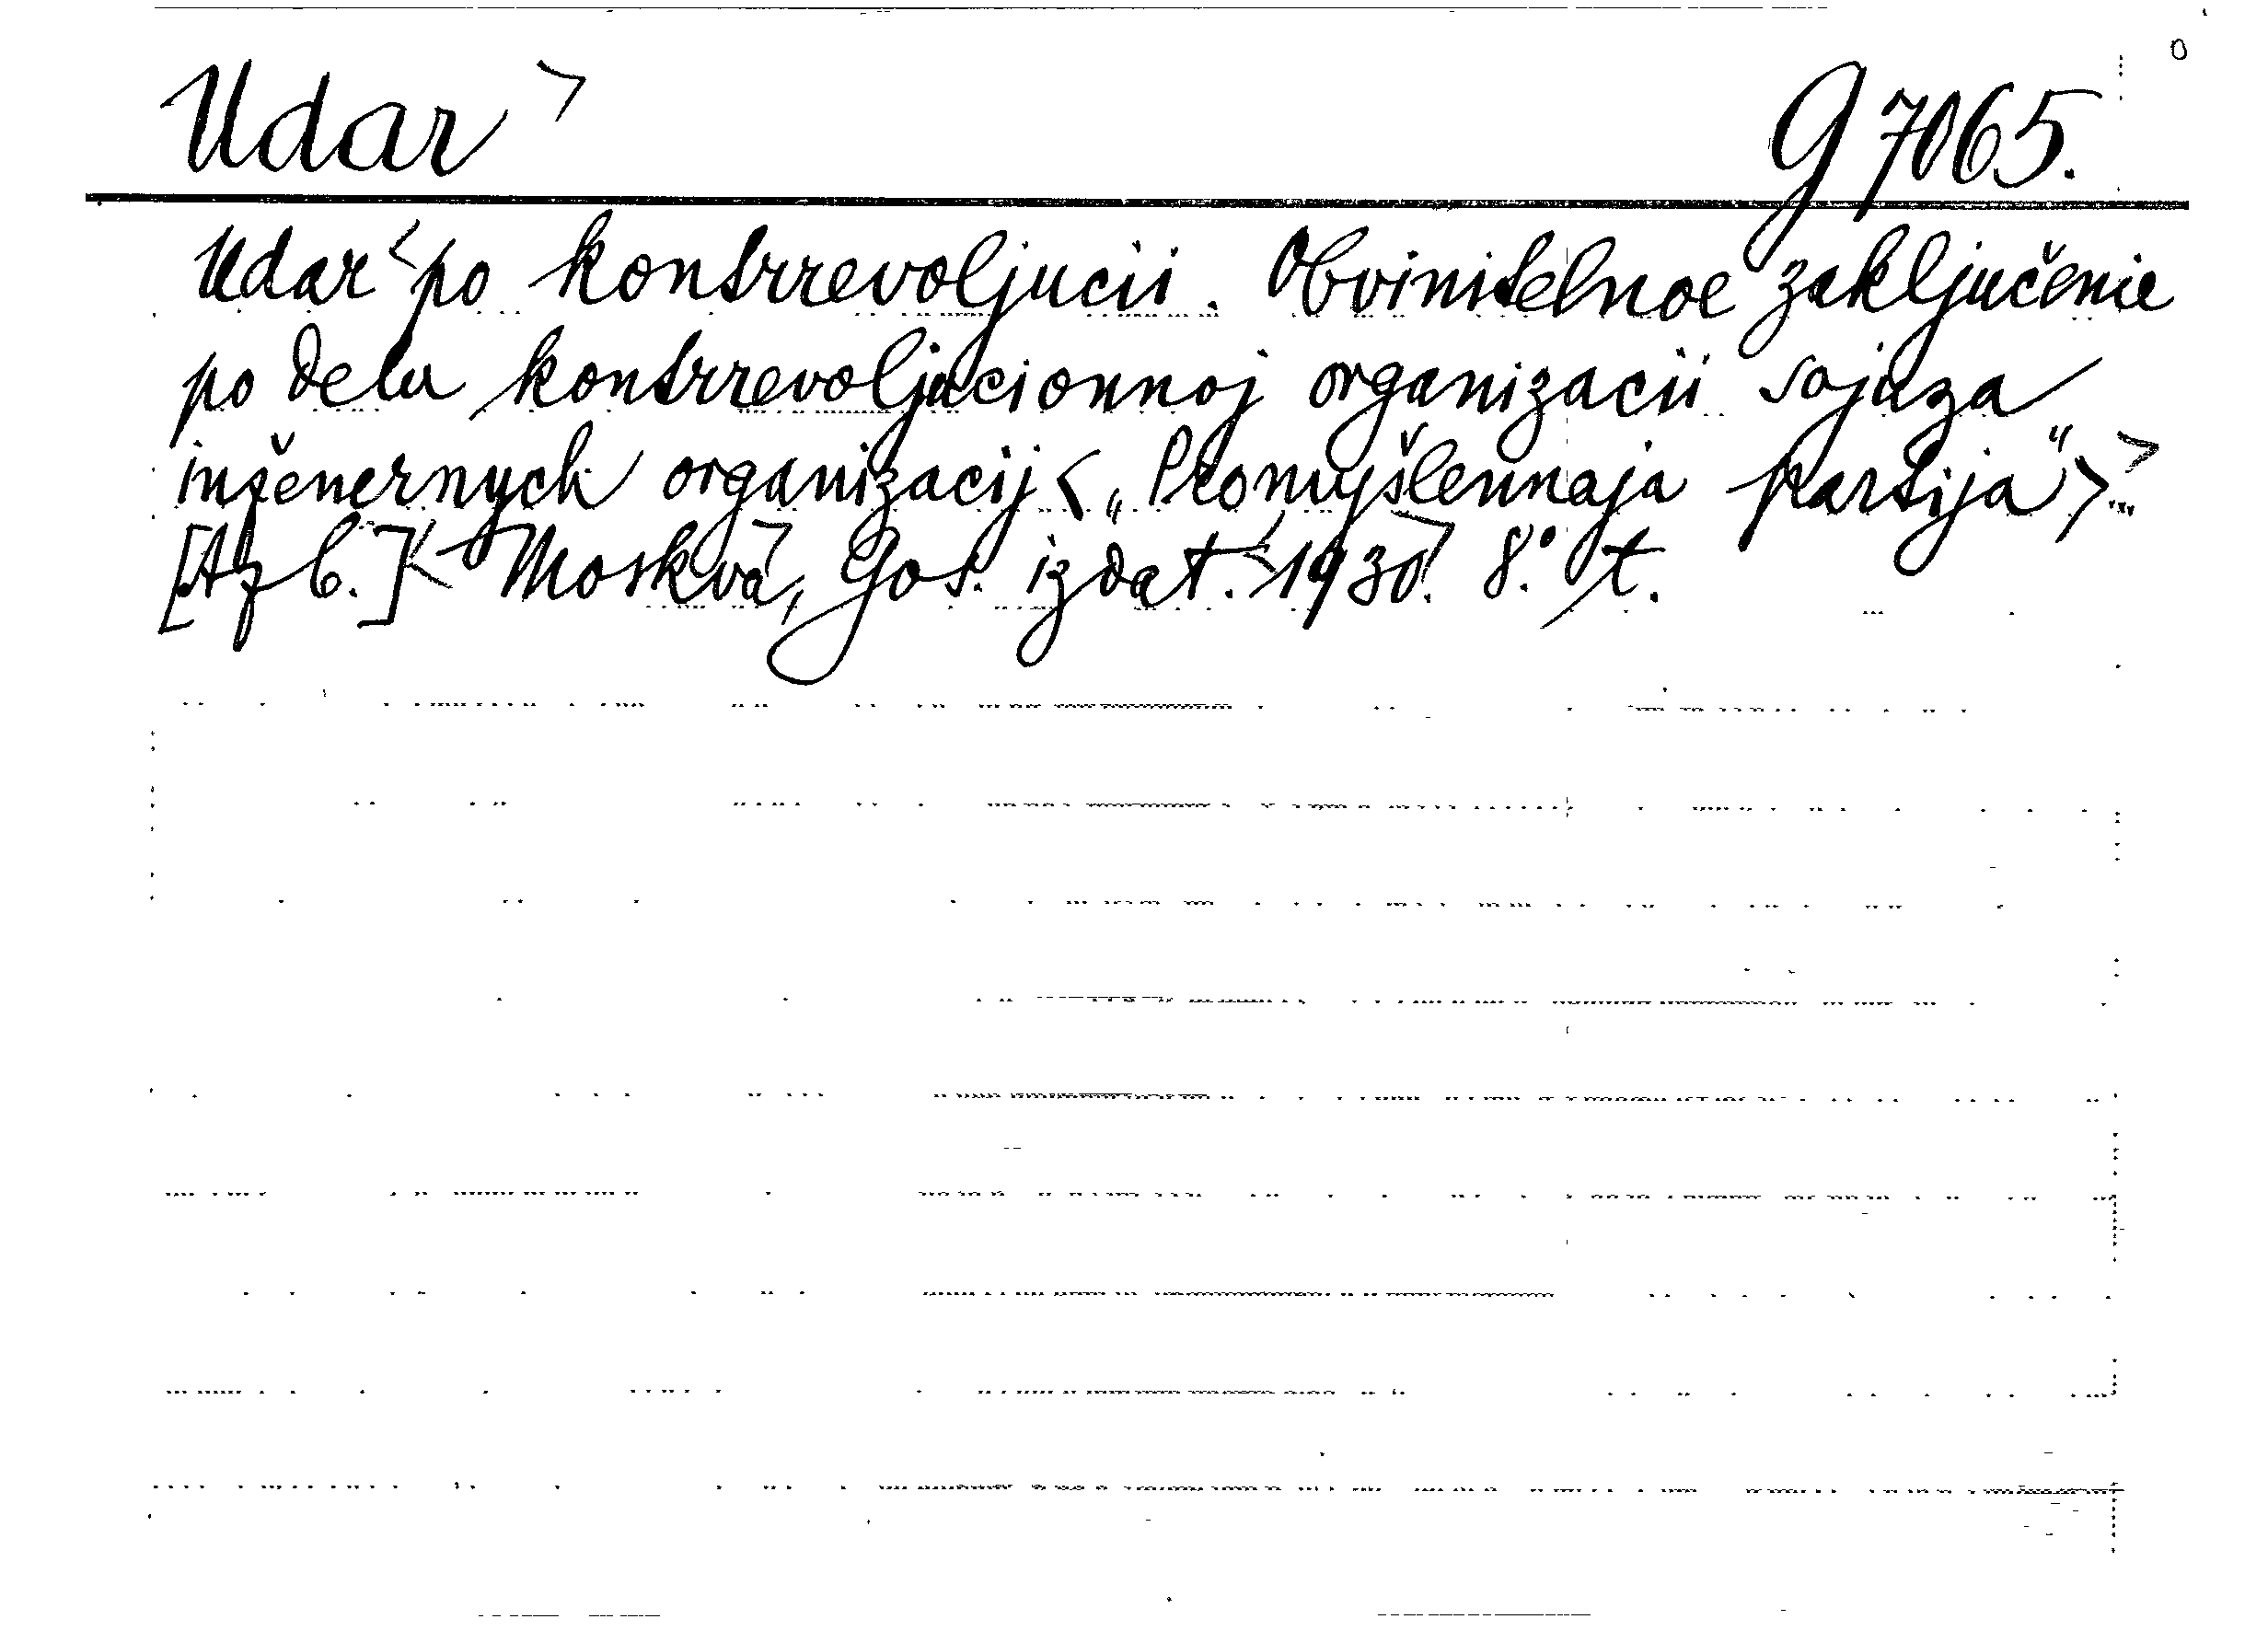 Udar G 7065.
Udar po kontrrevoljucii. Obvinitelnoe zaključenie
po delu kontrrevoljucionnoj organizacii sojuza
inženernych organizacij <„Promyšlennaja partija“>
Moskva, Gos. izdat. 1930. 8.° t.